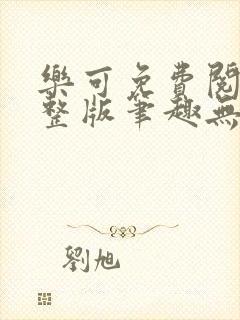 樂可免費閱
整版筆趣無
劉旭